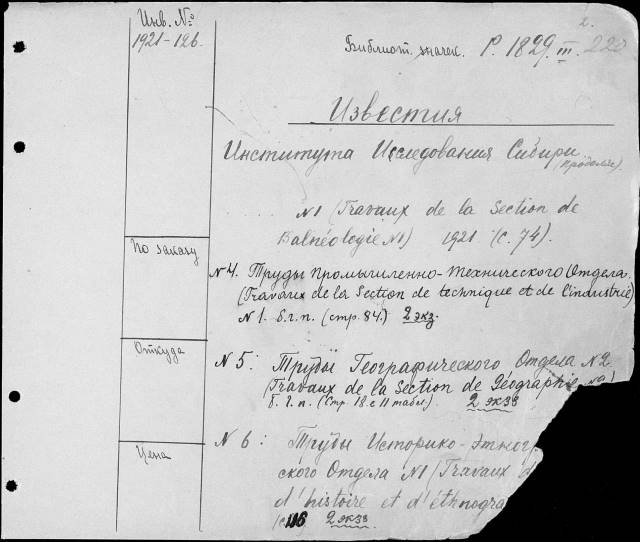 Инв. №
1921-126.
2.
Библиот. значек. P. 1829. III. 220
Известия
Института Исследования Сибири
(продолж.)
N1 (Travaux de la Section de
Balnéologie N1) 1921 (с. 74).
По заказу
N 4. Труды Промышленно-Технического Отдела.
(Travaux de la Section de technique et de l'industrie)
N 1. б.г.п. (стр. 84.) 2 экз.
Откуда
N 5: Труды Географического Отдела N2
(Travaux de la Section de Géographie N2)
б. г. п. (Стр. 18 с 11 табл.) 2 экз
Цена
N 6: Труды Историко-Этногр
ского Отдела N1 (Travaux d
d'histoire et d'éthnogra
2 экз.